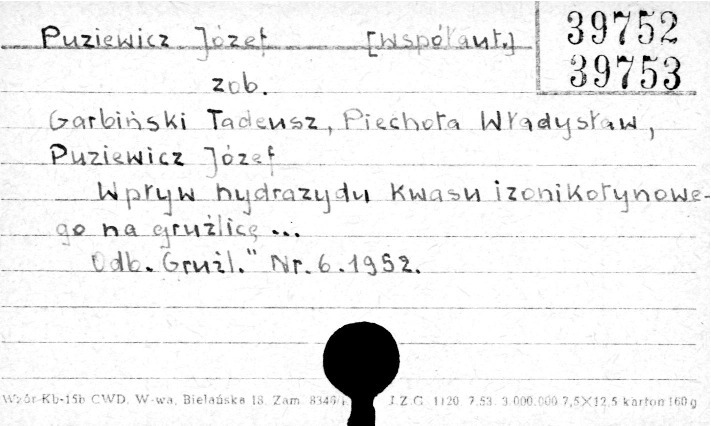 Puziewicz Józef [Współaut.]
39752
39753
zob.
Garbiński Tadeusz, Piechota Władysław,
Puziewicz Józef
Wpływ hydrazydu kwasu izonikotynowe-
go na gruźlicę ...
Odb. Gruźl." Nr. 6. 1952.
Wzór Kb-15b CWD. W-wa, Bielańska 18. Zam. J.Z.G. 1120 7.53. 3.000.000 7,5×12,5 karton 160 g